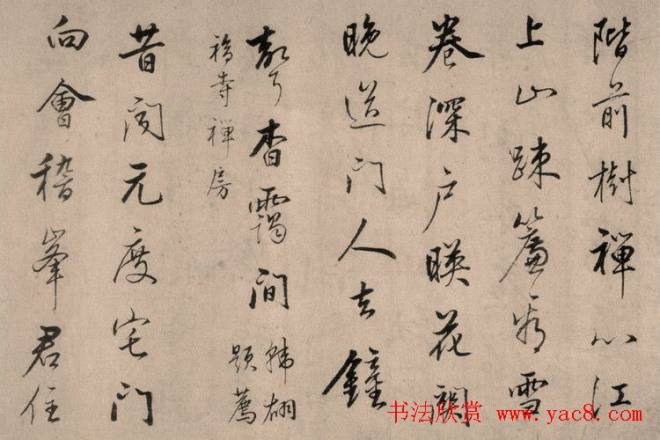 階前樹禪心江
上山踈簾看雪
卷深户暎花関
晚送门人去鐘
聲杳靄间
韓翃
題薦
福寺禪房
昔闻元度宅门
向會稽峯君住
书法欣赏 www.yac8.com